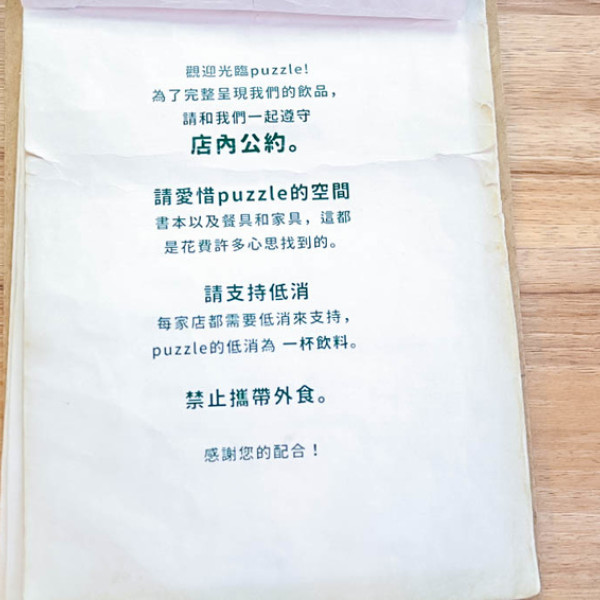 觀迎光臨puzzle!
為了完整呈現我們的飲品，
請和我們一起遵守
店內公約。
請愛惜puzzle的空間
書本以及餐具和家具，這都
是花費許多心思找到的。
請支持低消
每家店都需要低消來支持，
puzzle的低消為 一杯飲料。
禁止攜帶外食。
感謝您的配合！